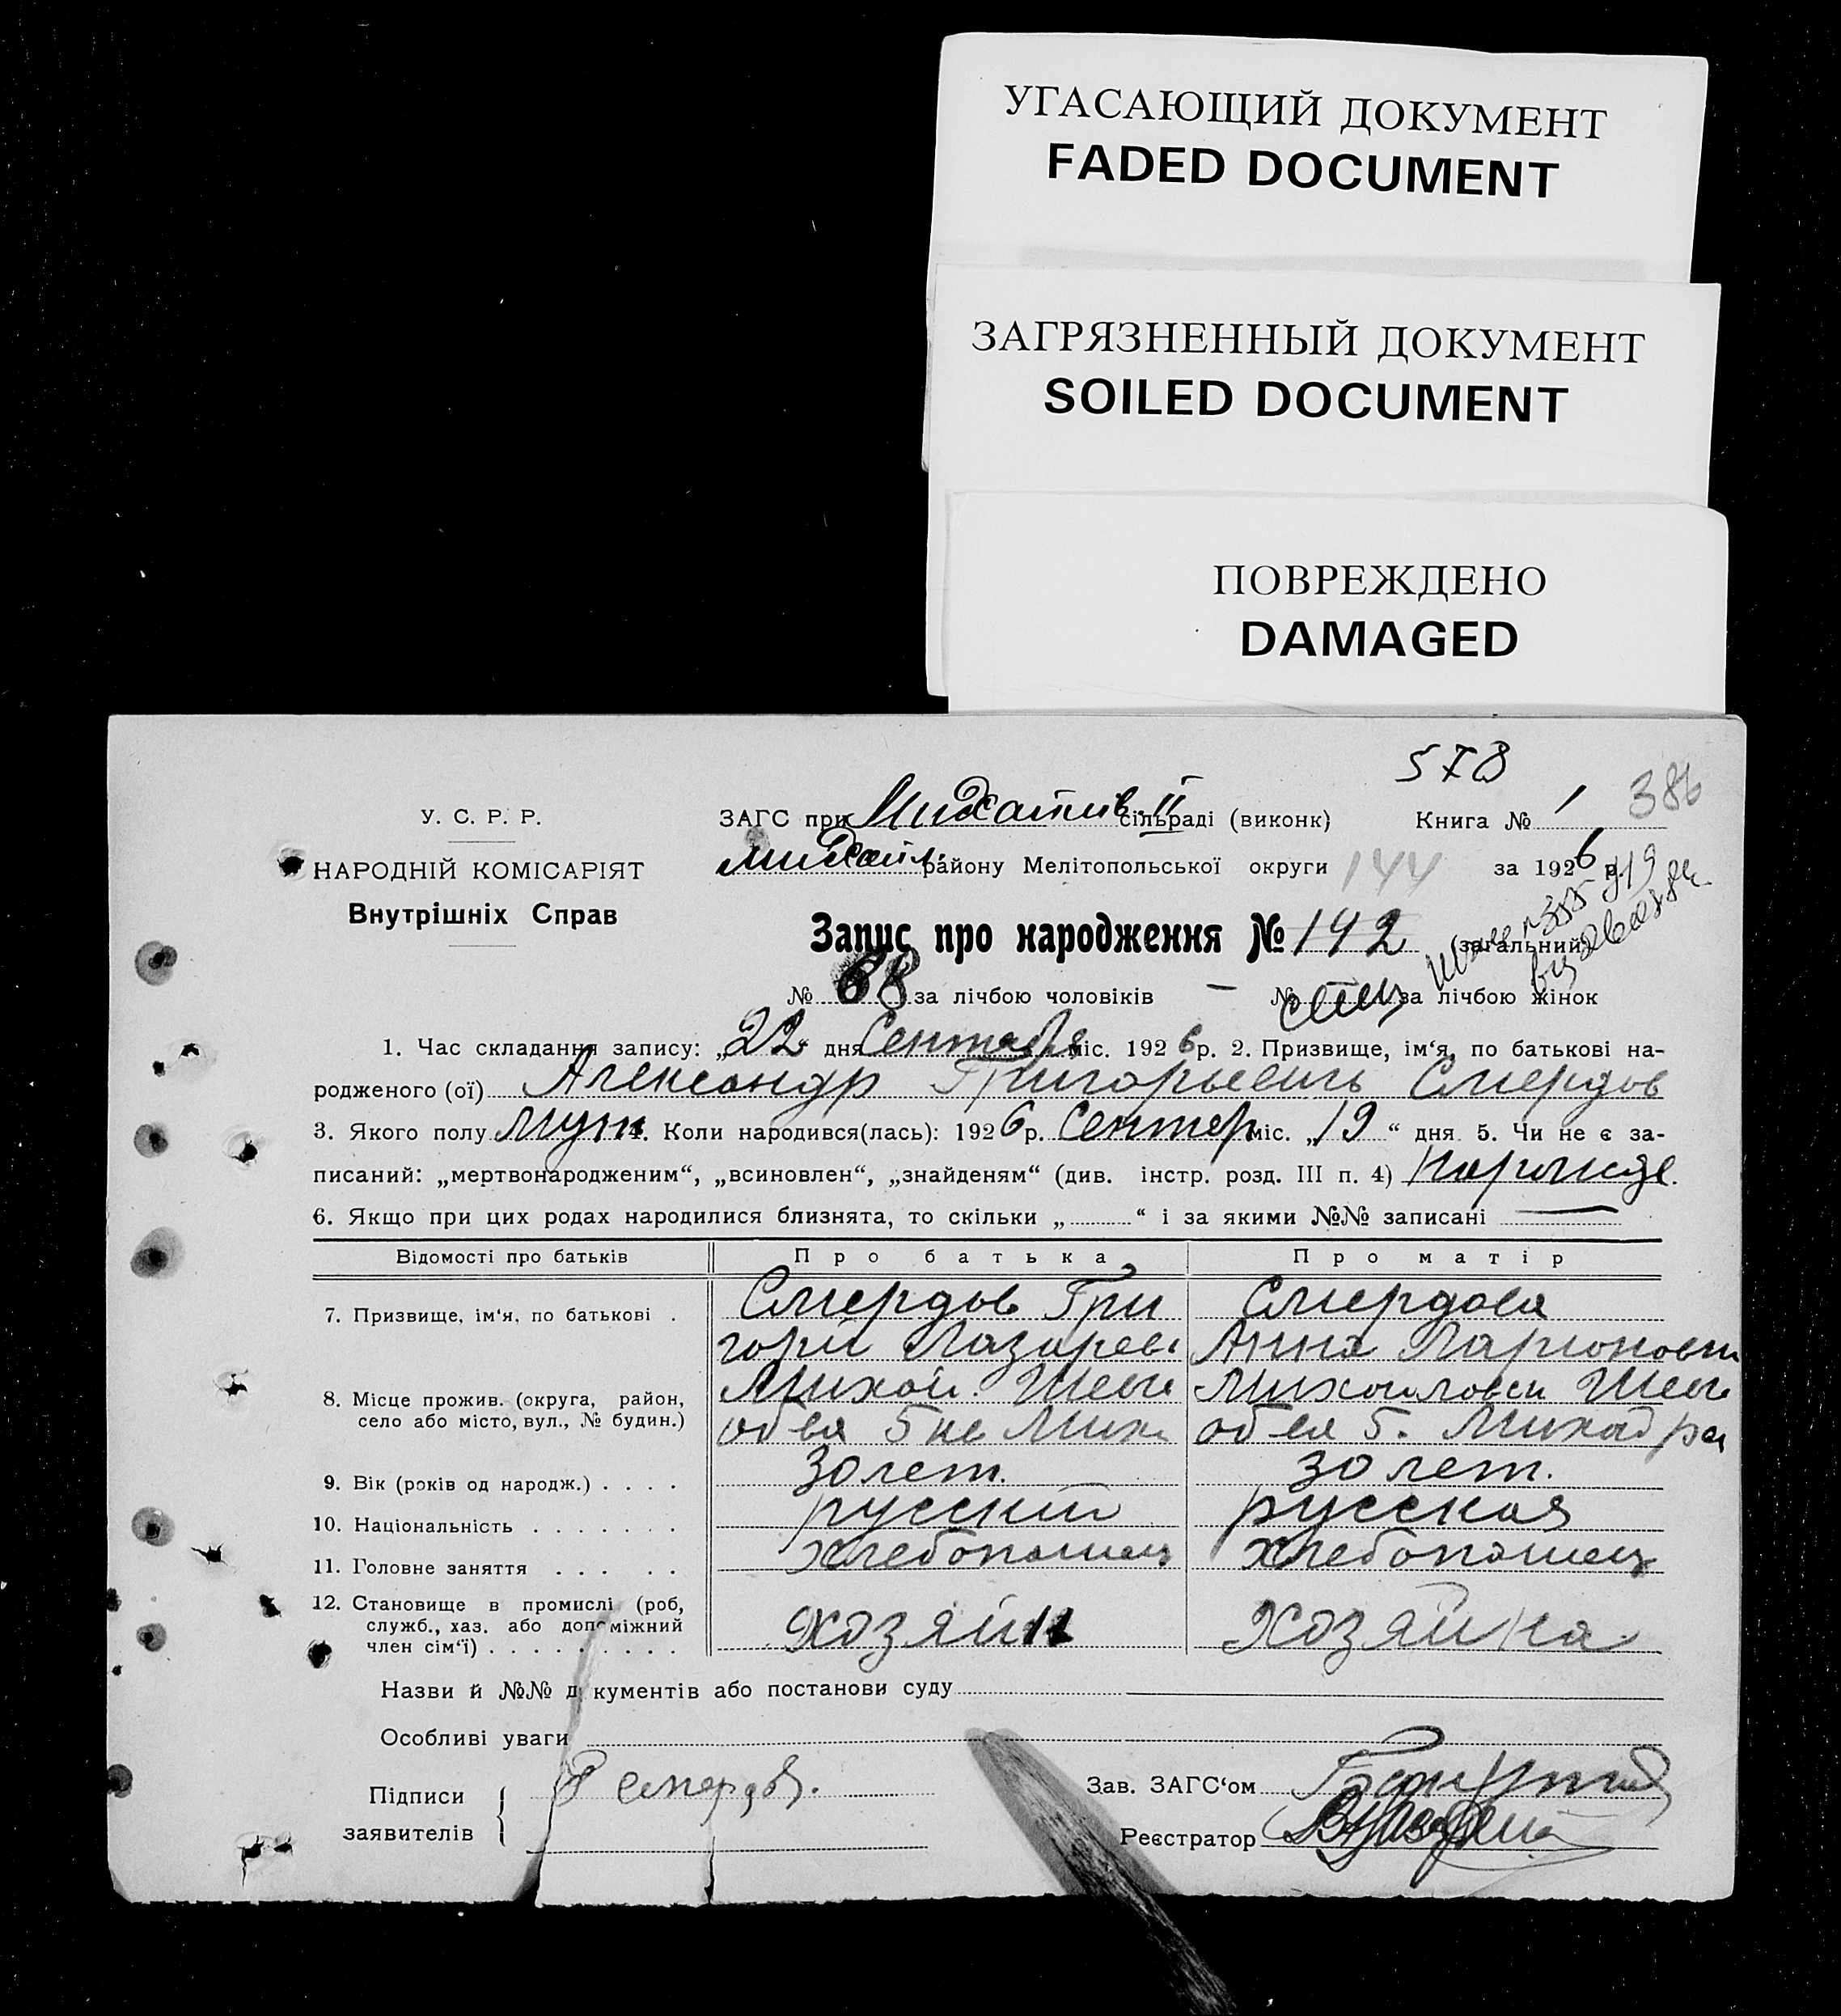 УГАСАЮЩИЙ ДОКУМЕНТ
FADED DOCUMENT
ЗАГРЯЗНЕННЫЙ ДОКУМЕНТ
SOILED DOCUMENT
ПОВРЕЖДЕНО
DAMAGED
578
386
У. С. Р. Р.
НАРОДНІЙ КОМІСАРІЯТ
Внутрішніх Справ
ЗАГС при II сільраді (виконк) Книга № 1
Михайл. району Мелітопольської округи 144 за 1926 р.
Запис про народження № 142 (загальний)
№ 68 за лічбою чоловіків — № за лічбою жінок
1. Час складання запису: „22 дня Сентября міс. 1926 р. 2. Призвище, ім‘я, по батькові на-
родженого (ої) Александр Григорьевичь Смердов
3. Якого полу муж 4. Коли народився(лась): 1926 р. Сентяб міс. „19“ дня 5. Чи не є за-
писаний: „мертвонародженим“, „всиновлен“, „знайденям“ (див. інстр. розд. III п. 4)
6. Якщо при цих родах народилися близнята, то скільки „ “ і за якими №№ записані
Відомості про батьків Про батька Про матір
7. Призвище, ім‘я, по батькові . Смердов Гри Смердова
горий Лазарев Анна Ларионовн
8. Місце прожив. (округа, район, село або місто, вул., № будин.) Михай. Михайловси
5 5.
9. Вік (років од народж.) . . . . 30 лет. 30 лет.
10. Національність . . . . . . . русский русская
11. Головне заняття . . . . . хлебопашец хлебопашец
12. Становище в промислі (роб,
служб., хаз. або допоміжний
член сім‘ї) . . . . . . . . . хозяин хозяйка
Назви й №№ документів або постанови суду
Особливі уваги
Підписи
заявителів Смердов.
Зав. ЗАГС‘ом
Реєстратор